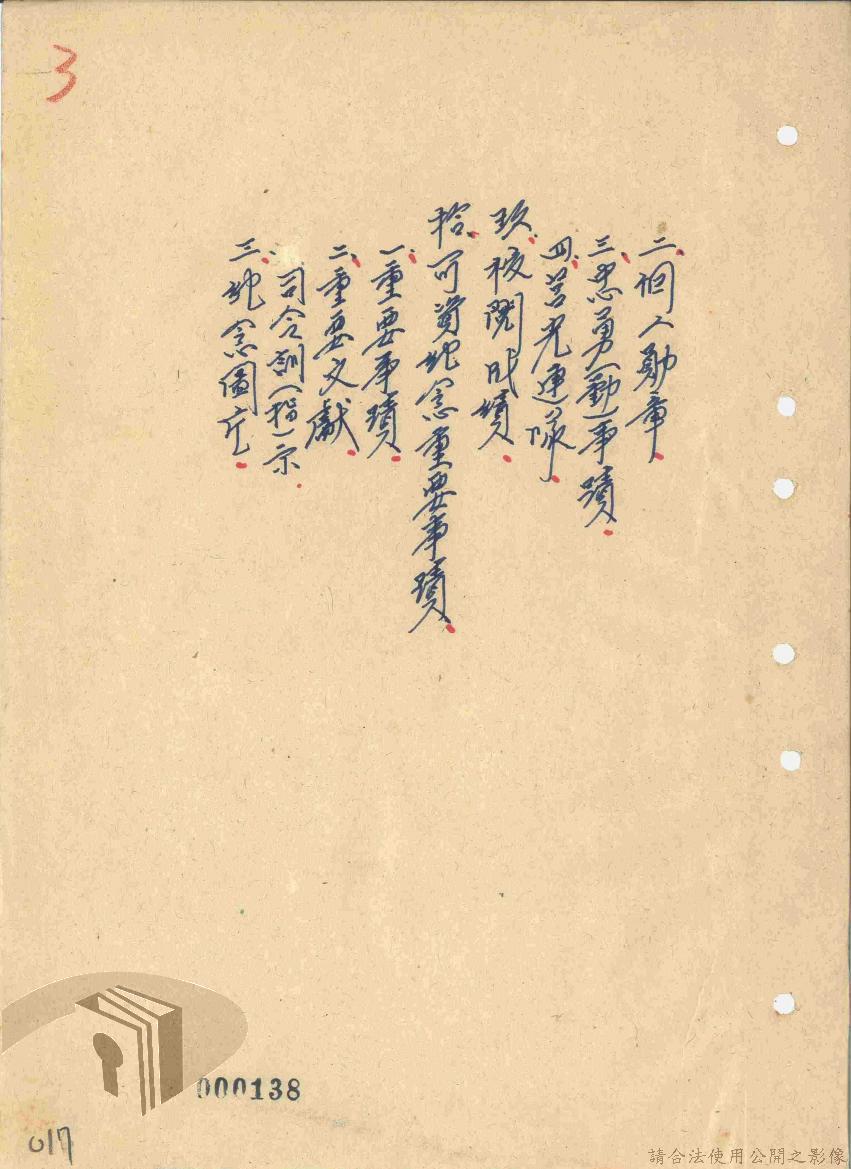 3
二、個人勛章
三、忠勇(勤)事蹟
四、莒光連隊
玖、校閱成績
拾、可資紀念重要事蹟
一、重要事蹟
二、重要文獻
司令訓(指)示
三、紀念圖片
000138
017
請合法使用公開之影像